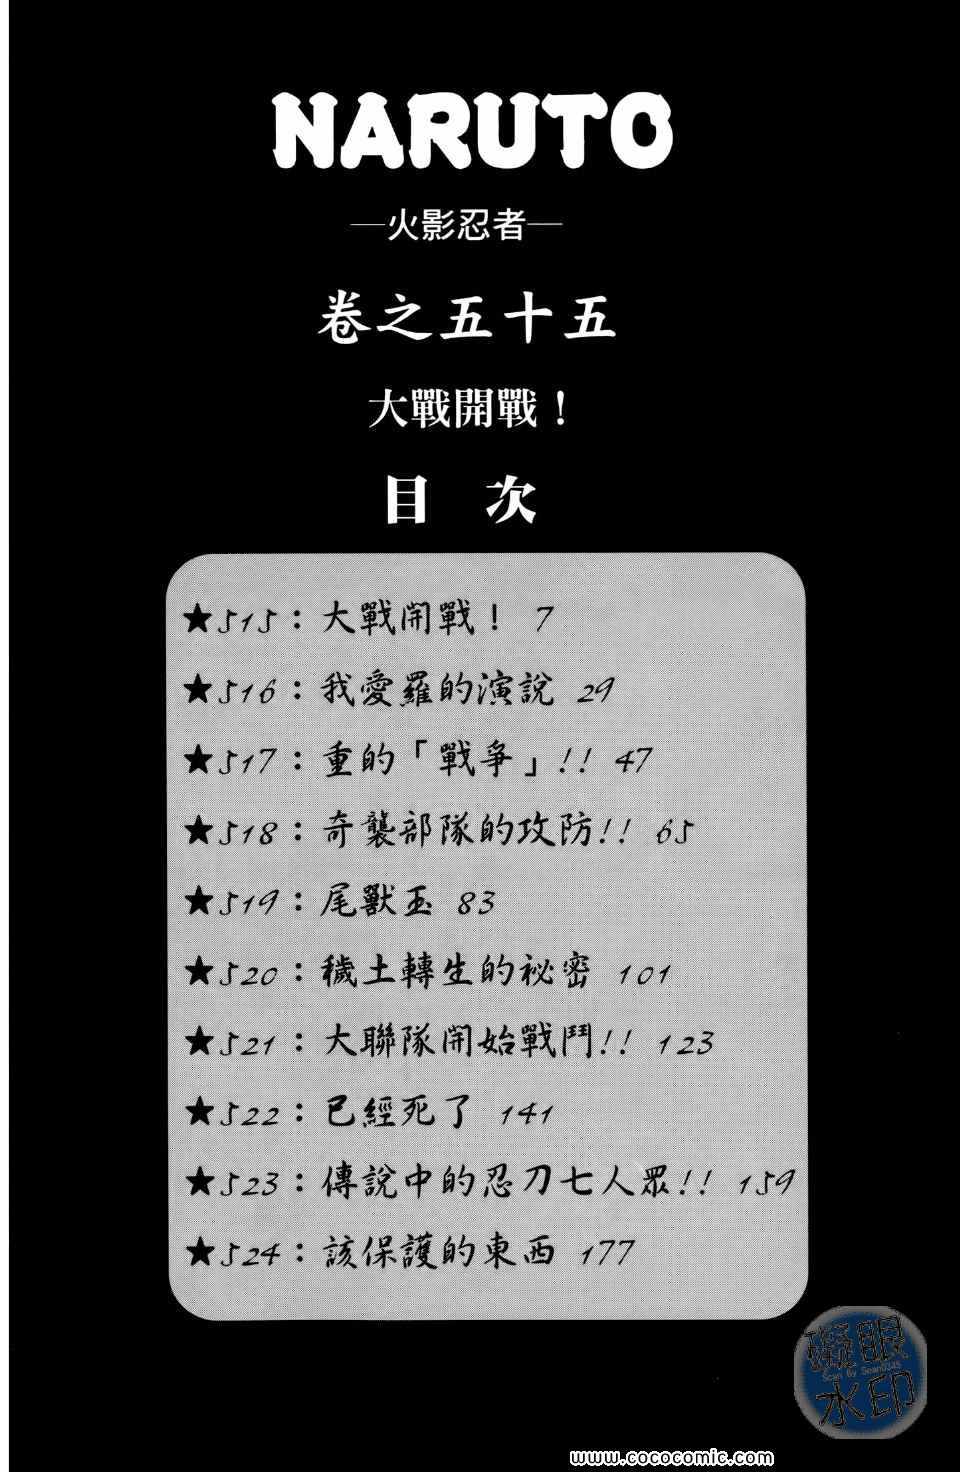 NARUTO
—火影忍者—
卷之五十五
大戰開戰！
目 次
★515：大戰開戰！ 7
★516：我愛羅的演說 29
★517：重的「戰爭」!! 47
★518：奇襲部隊的攻防!! 65
★519：尾獸玉 83
★520：穢土轉生的祕密 101
★521：大聯隊開始戰鬥!! 123
★522：已經死了 141
★523：傳說中的忍刀七人眾!! 159
★524：該保護的東西 177
眼
Scan By Sean0245
水印
www.cococomic.com